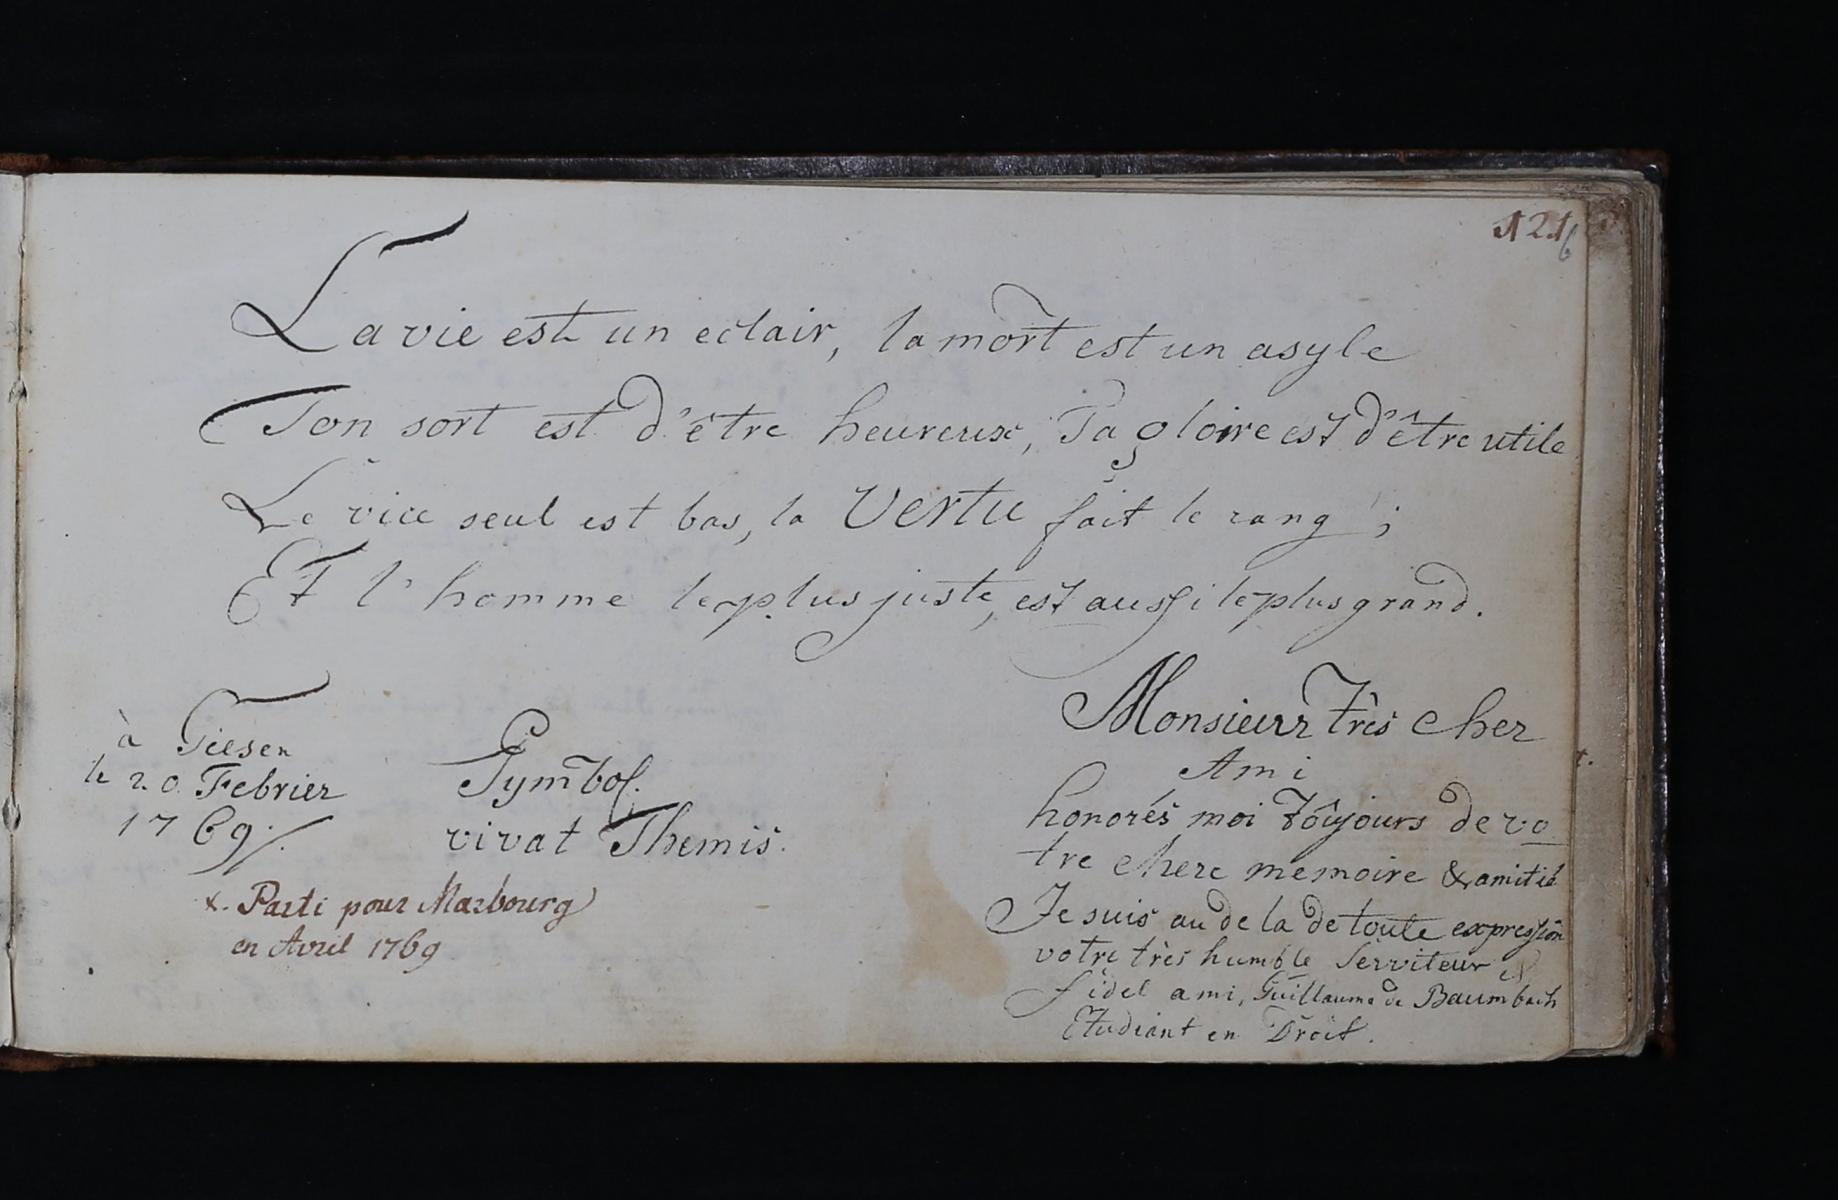 121
6
La vie est un eclair, la mort est un asyle
Ton sort est d'être heureux, Ta gloire est d'être utile
Le vice seul est bas, la Vertu fait le rang;
Et l'homme le plus juste, est aussi le plus grand.
à Giesen
le 20 Febrier
1769/.
Symbol.
vivat Themis.
x. Parti pour Marbourg
en Avril 1769
Monsieur très cher
Ami
honorés moi toûjours de vo
tre chere memoire & amitié
Je suis au de la de toute expression
votre très humble Serviteur &
fidel ami, Guillaume de Baumbach
Etudiant en Droit.